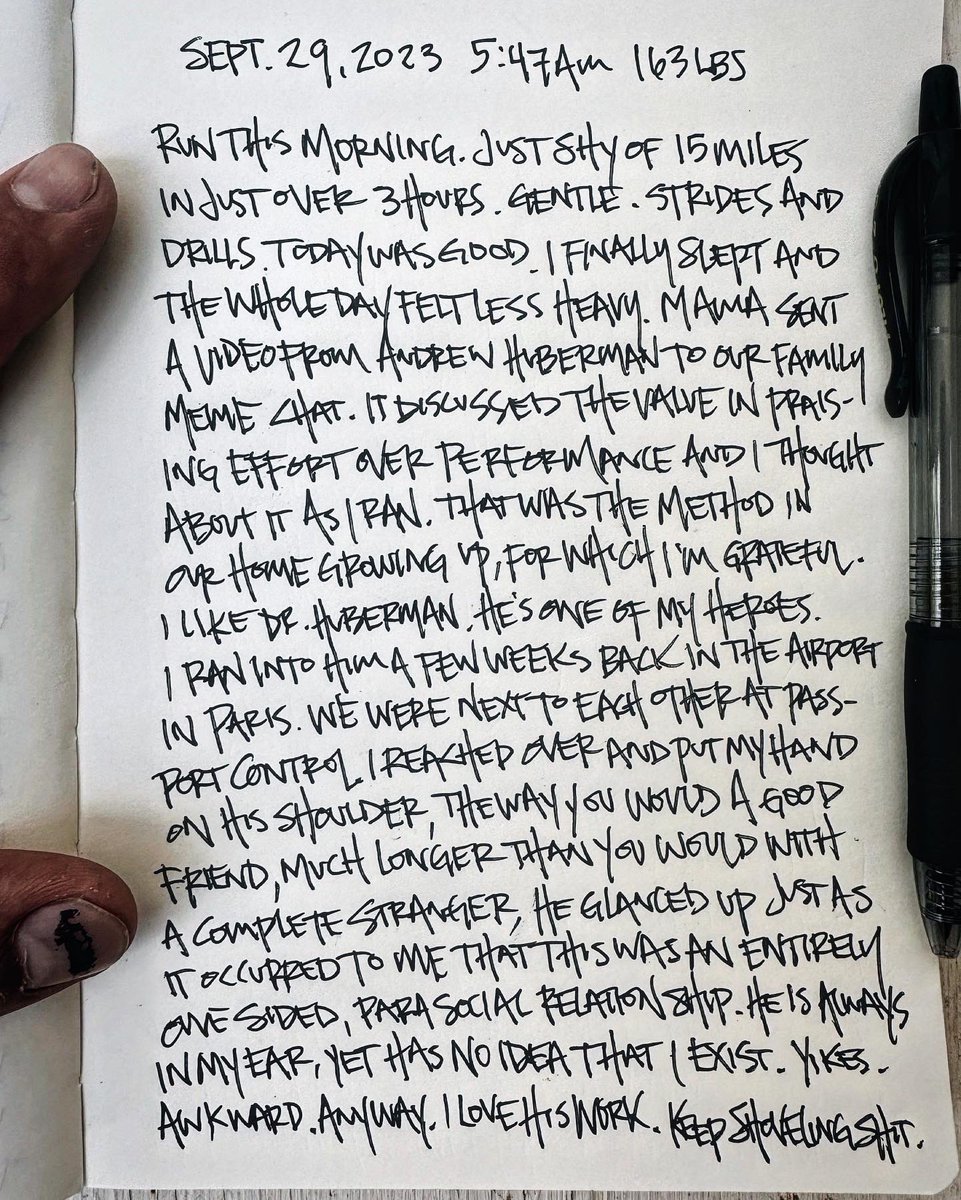 SEPT. 29, 2023 5:47AM 163 LBS
RUN THIS MORNING. JUST SHY OF 15 MILES
IN JUST OVER 3 HOURS. GENTLE. STRIDES AND
DRILLS. TODAY WAS GOOD. I FINALLY SLEPT AND
THE WHOLE DAY FELT LESS HEAVY. MAMA SENT
A VIDEO FROM ANDREW HUBERMAN TO OUR FAMILY
MEME CHAT. IT DISCUSSED THE VALUE IN PRAIS-
ING EFFORT OVER PERFORMANCE AND I THOUGHT
ABOUT IT AS I RAN. THAT WAS THE METHOD IN
OUR HOME GROWING UP, FOR WHICH I'M GRATEFUL.
I LIKE DR. HUBERMAN. HE'S ONE OF MY HEROES.
I RAN INTO HIM A FEW WEEKS BACK IN THE AIRPORT
IN PARIS. WE WERE NEXT TO EACH OTHER AT PASS-
PORT CONTROL. I REACHED OVER AND PUT MY HAND
ON HIS SHOULDER, THE WAY YOU WOULD A GOOD
FRIEND, MUCH LONGER THAN YOU WOULD WITH
A COMPLETE STRANGER, HE GLANCED UP JUST AS
IT OCCURRED TO ME THAT THIS WAS AN ENTIRELY
ONE SIDED, PARA SOCIAL RELATIONSHIP. HE IS ALWAYS
IN MY EAR, YET HAS NO IDEA THAT I EXIST. YIKES.
AWKWARD. ANYWAY. I LOVE HIS WORK. KEEP SHOVELING SHIT.